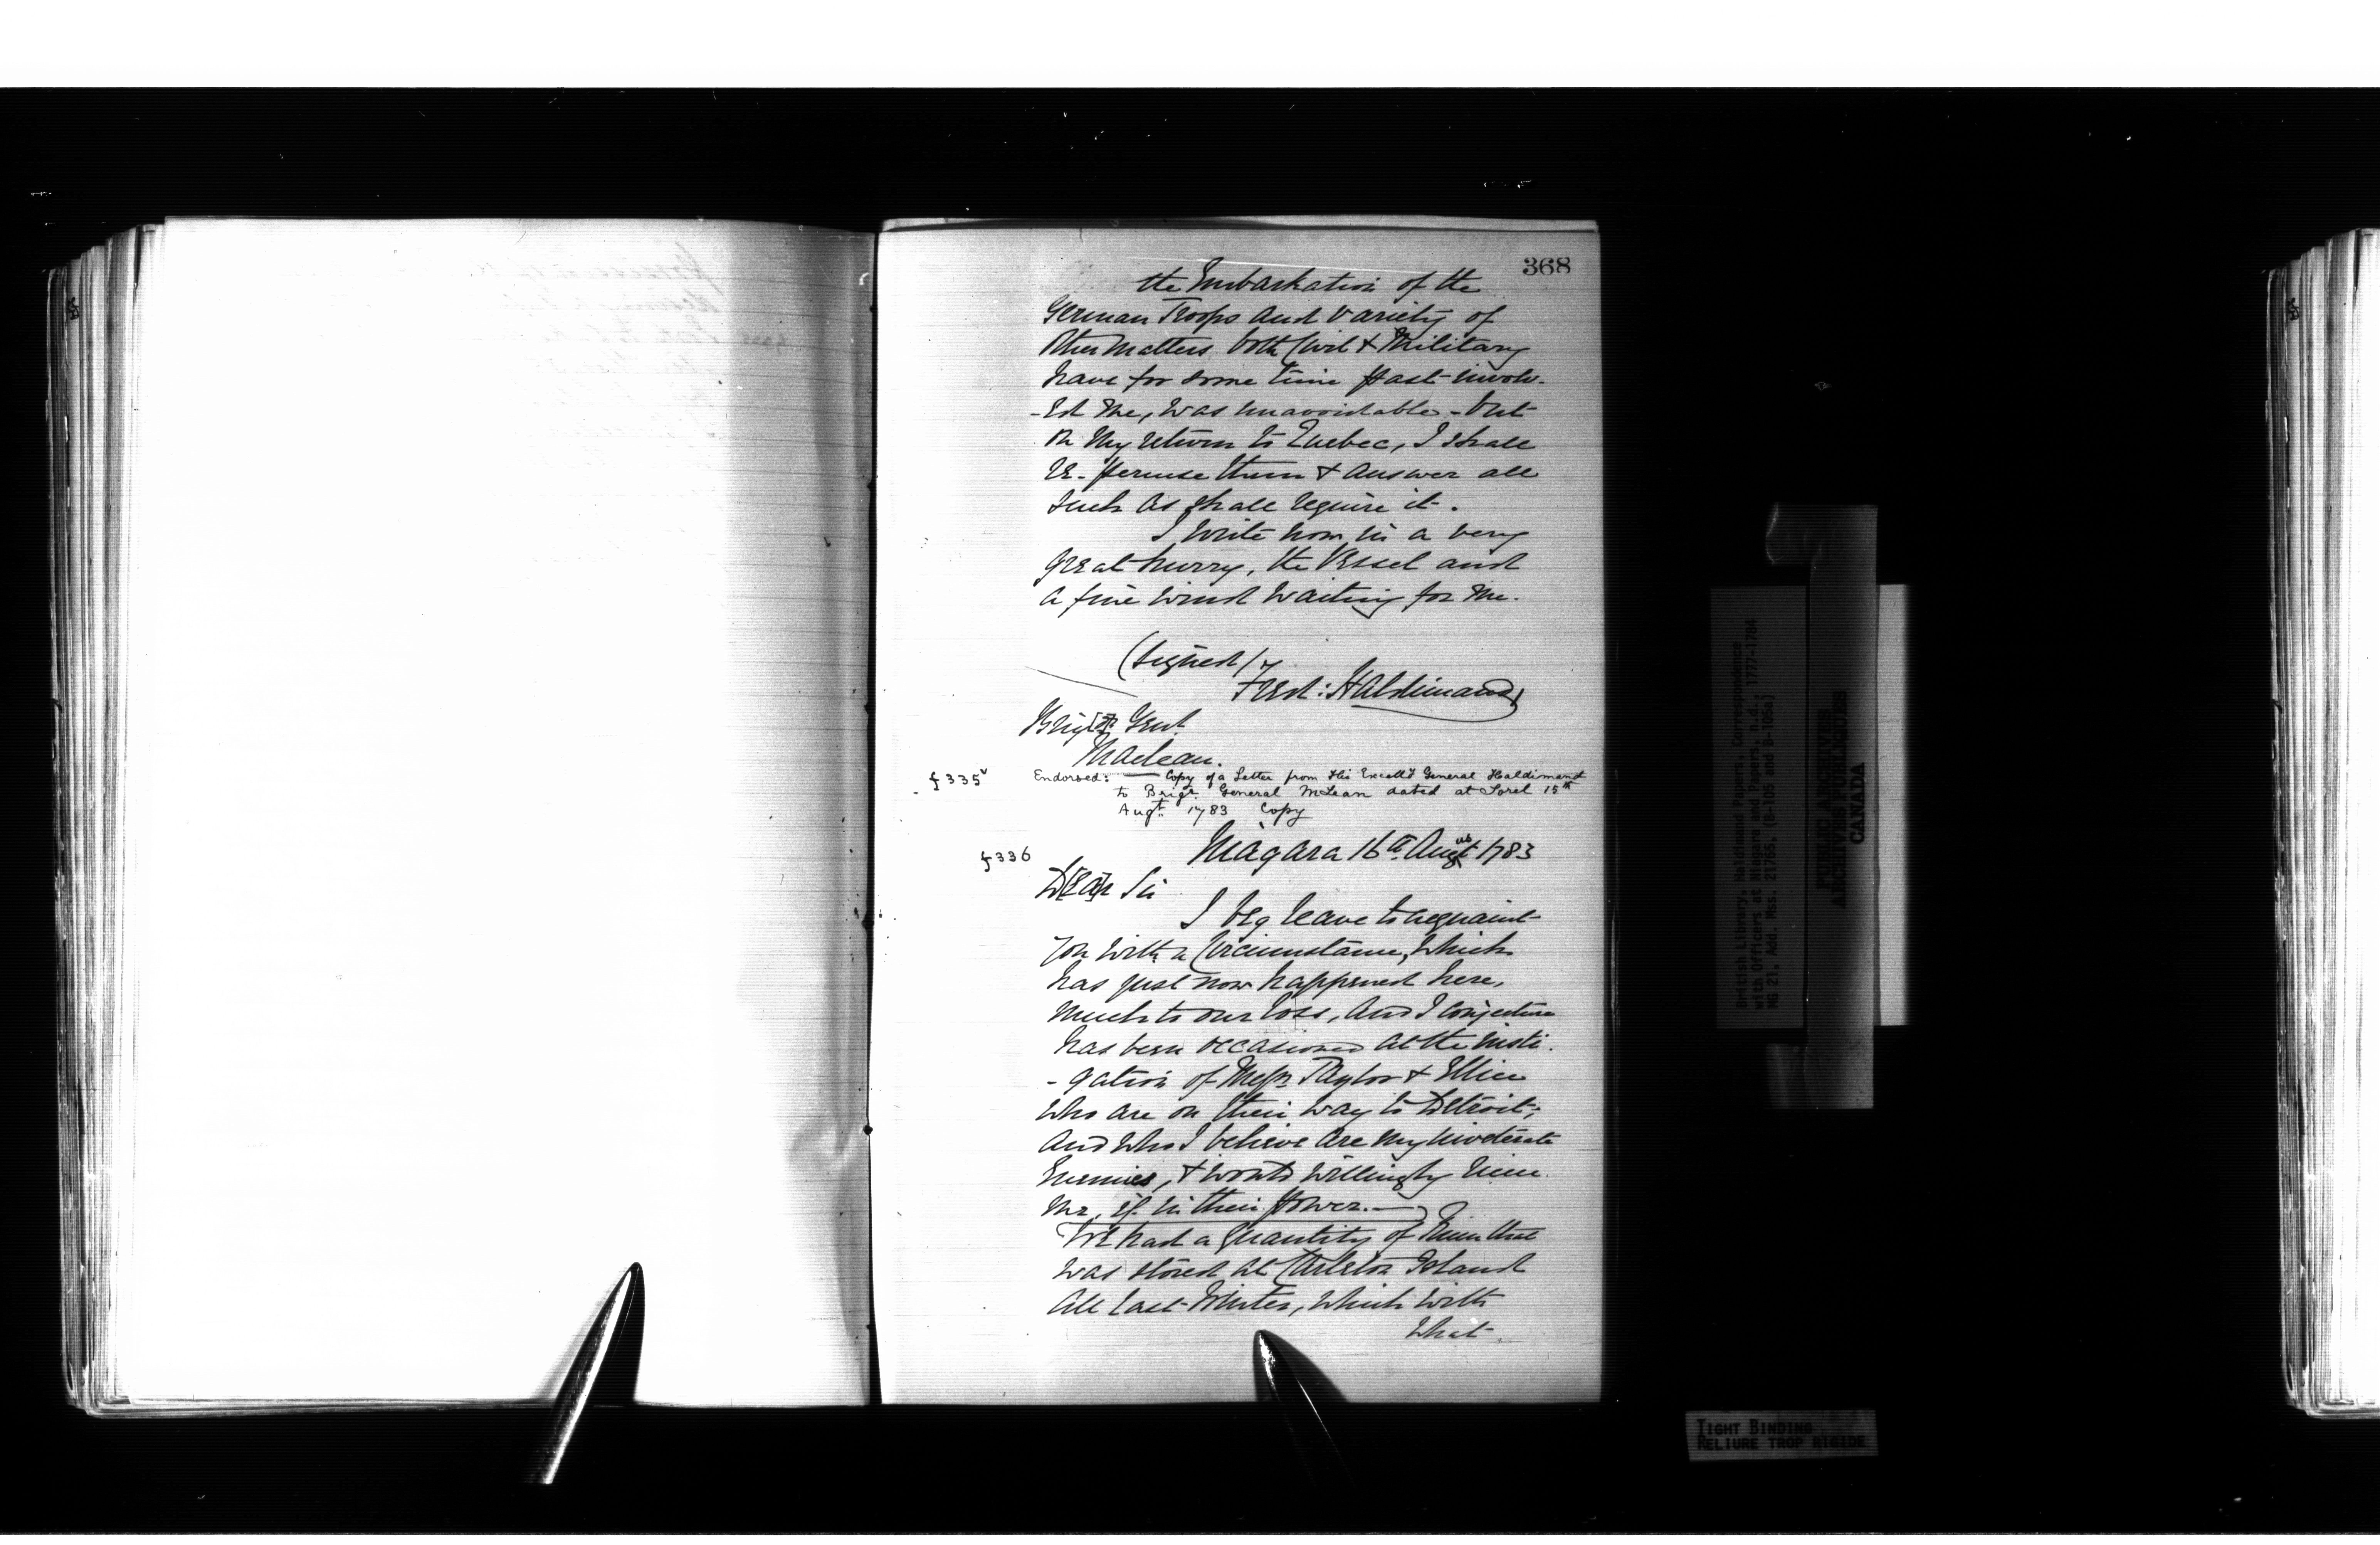 368
the Embarkation of the
German Troops and Variety of
Other Matters both Civil & Military
have for some time past involv-
-ed Me, was unavoidable - but
on My return to Quebec, I shall
re-peruse them & answer all
such as shall require it.
I write now in a very
great hurry, the Vessel and
a fine wind waiting for me.
(signed)
Fred: Haldimand
Brig[r] Genl.
Maclean.
f 335v
Endorsed: — Copy of a Letter from His Excell'y General Haldimand
to Brigr. General McLean dated at Sorel 15th
Augt. 1783 Copy
f 336
Niagara 16th August 1783
D[ea]r Sir
I beg leave to acquaint
You with a Circumstance, which
has just now happened here,
much to our loss, and I conjecture
has been occasioned at the insti-
-gation of Messrs Taylor & Ellice
who are on their way to Detroit;
and who I believe are my inveterate
Enemies, & would willingly ruin
me, if in their power. —
We had a quantity of Rum that
was stored at Carleton Island
all last Winter, which with
what
British Library, Haldimand Papers, Correspondence
with Officers at Niagara and Papers, n.d., 1777-1784
MG 21, Add. Mss. 21765, (B-105 and B-105a)
PUBLIC ARCHIVES
ARCHIVES PUBLIQUES
CANADA
TIGHT BINDING
RELIURE TROP RIGIDE